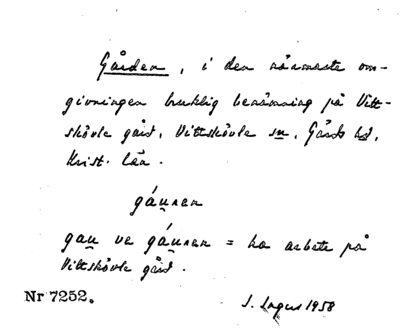 Gården, i den närmaste om-
givningen bruklig benämning på Vitt-
skövle gård, Vittskövle sn, Gärds hd,
Krist. län.
gáunen
gau ve gáunen = ha arbete på
Vittskövle gård.
Nr 7252.
S. Ingers 1958